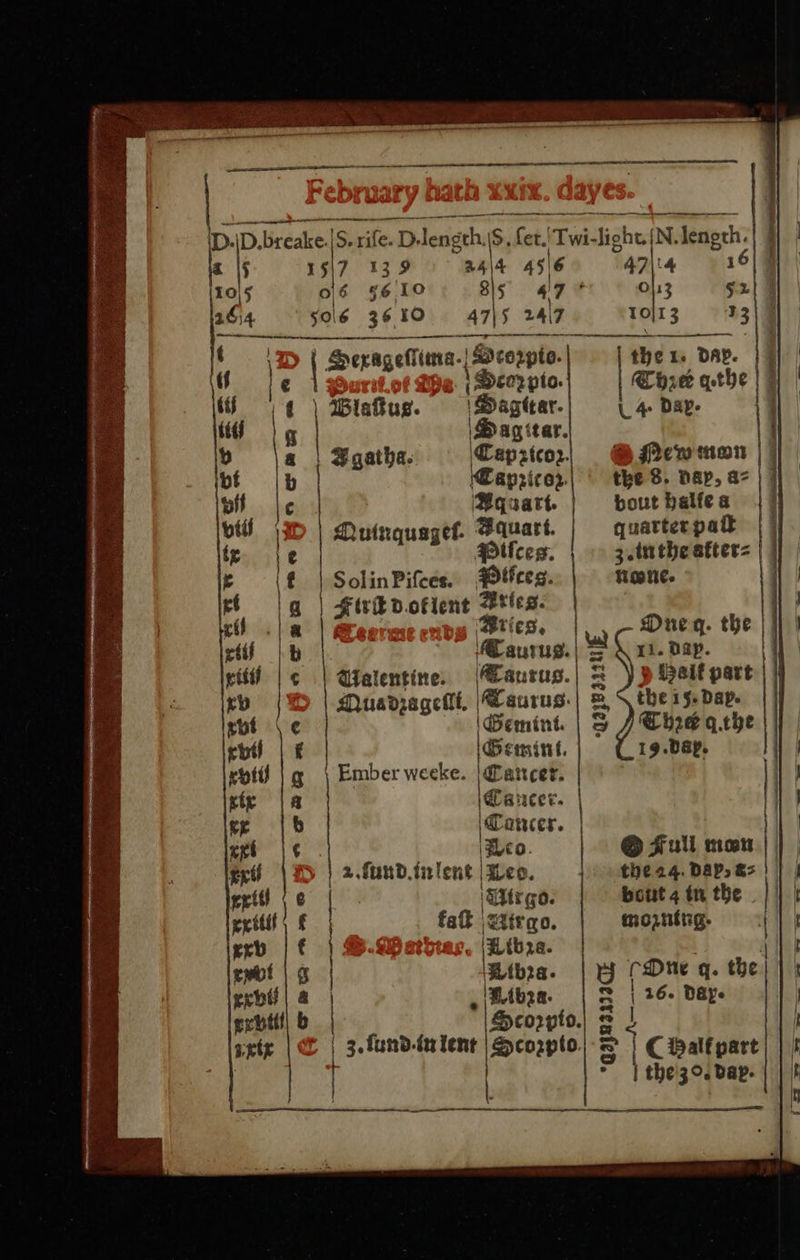 February hath xxix. dayes.
D.|D.breake.|S. rise. D.length.|S. set.|Twi-light.|N.length.
2 |5 15|7 13 9 24|4 45|6 47|14 16
10|5 0|6 56 10 8|5 4|7 0|13 52
26|4 50|6 36 10 47|5 24|7 10|13 13
i D Sexagesima. Scorpio. the 1. day.
ii e Purif. of Ma Scorpio. Three q. the
iii f Blasius. Sagitar. 4. day.
iiii g Sagitar.
v a Agatha. Capricor. Newmoon
vi b Capricor. the 8. day, a-
vii c Aquari. bout halfe a
viii D Quinquagesi. Aquari. quarter past
ix e Pisces. 3. in the after-
x f Sol in Pisces. Pisces. noone.
xi g First D. of lent Aries.
xii a Tearme ends Aries. One q. the
xiii b Taurus. 11. day.
xiiii c Valentine. Taurus. Half part
xv D Quadragesi. Taurus. the 15. day.
xvi e Gemini. Three q. the
xvii f Gemini. 19. day.
xviii g Ember weeke. Cancer.
xix a Cancer.
xx b Cancer.
xxi c Leo. Full moon
xxii D 2. sund. in lent Leo. the 24. day, a-
xxiii e Virgo. bout 4 in the
xxiiii f fast Virgo. morning.
xxv f S. Mathias. Libra.
xxvi g Libra. One q. the
xxvii a Libra. 26. daye
xxviii b Scorpio.
xxix C 3. sund. in lent Scorpio. Half part
the 30. day.